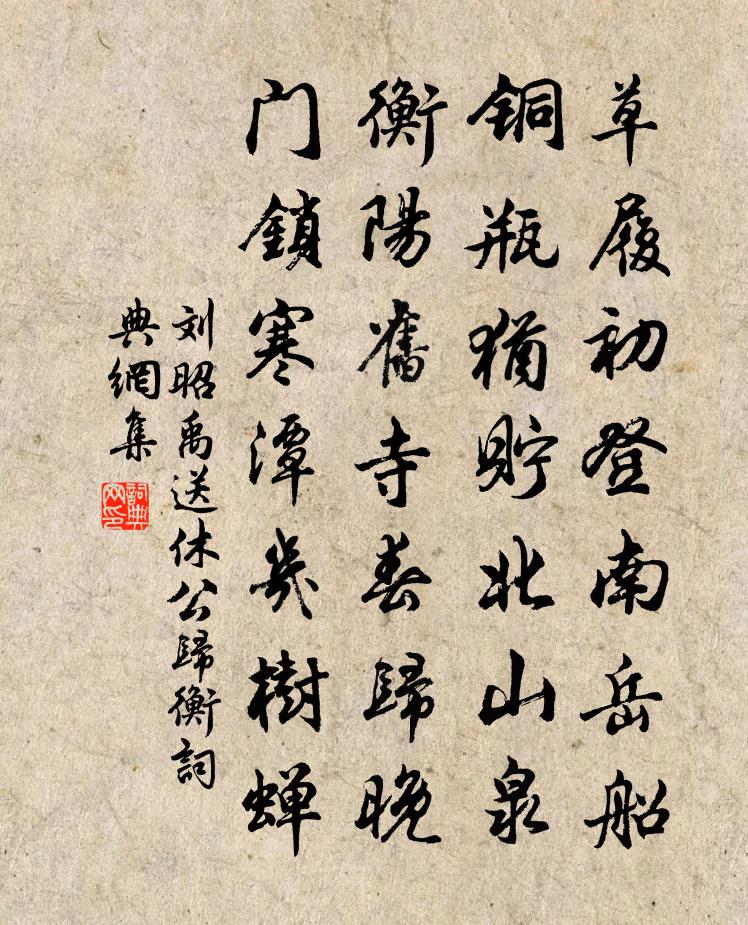 草履初登南岳船
铜瓶猶貯北山泉
衡陽舊寺春歸晚
门鎖寒潭幾樹蝉
刘昭禹送休公歸衡詞
典網集
詞典
网印